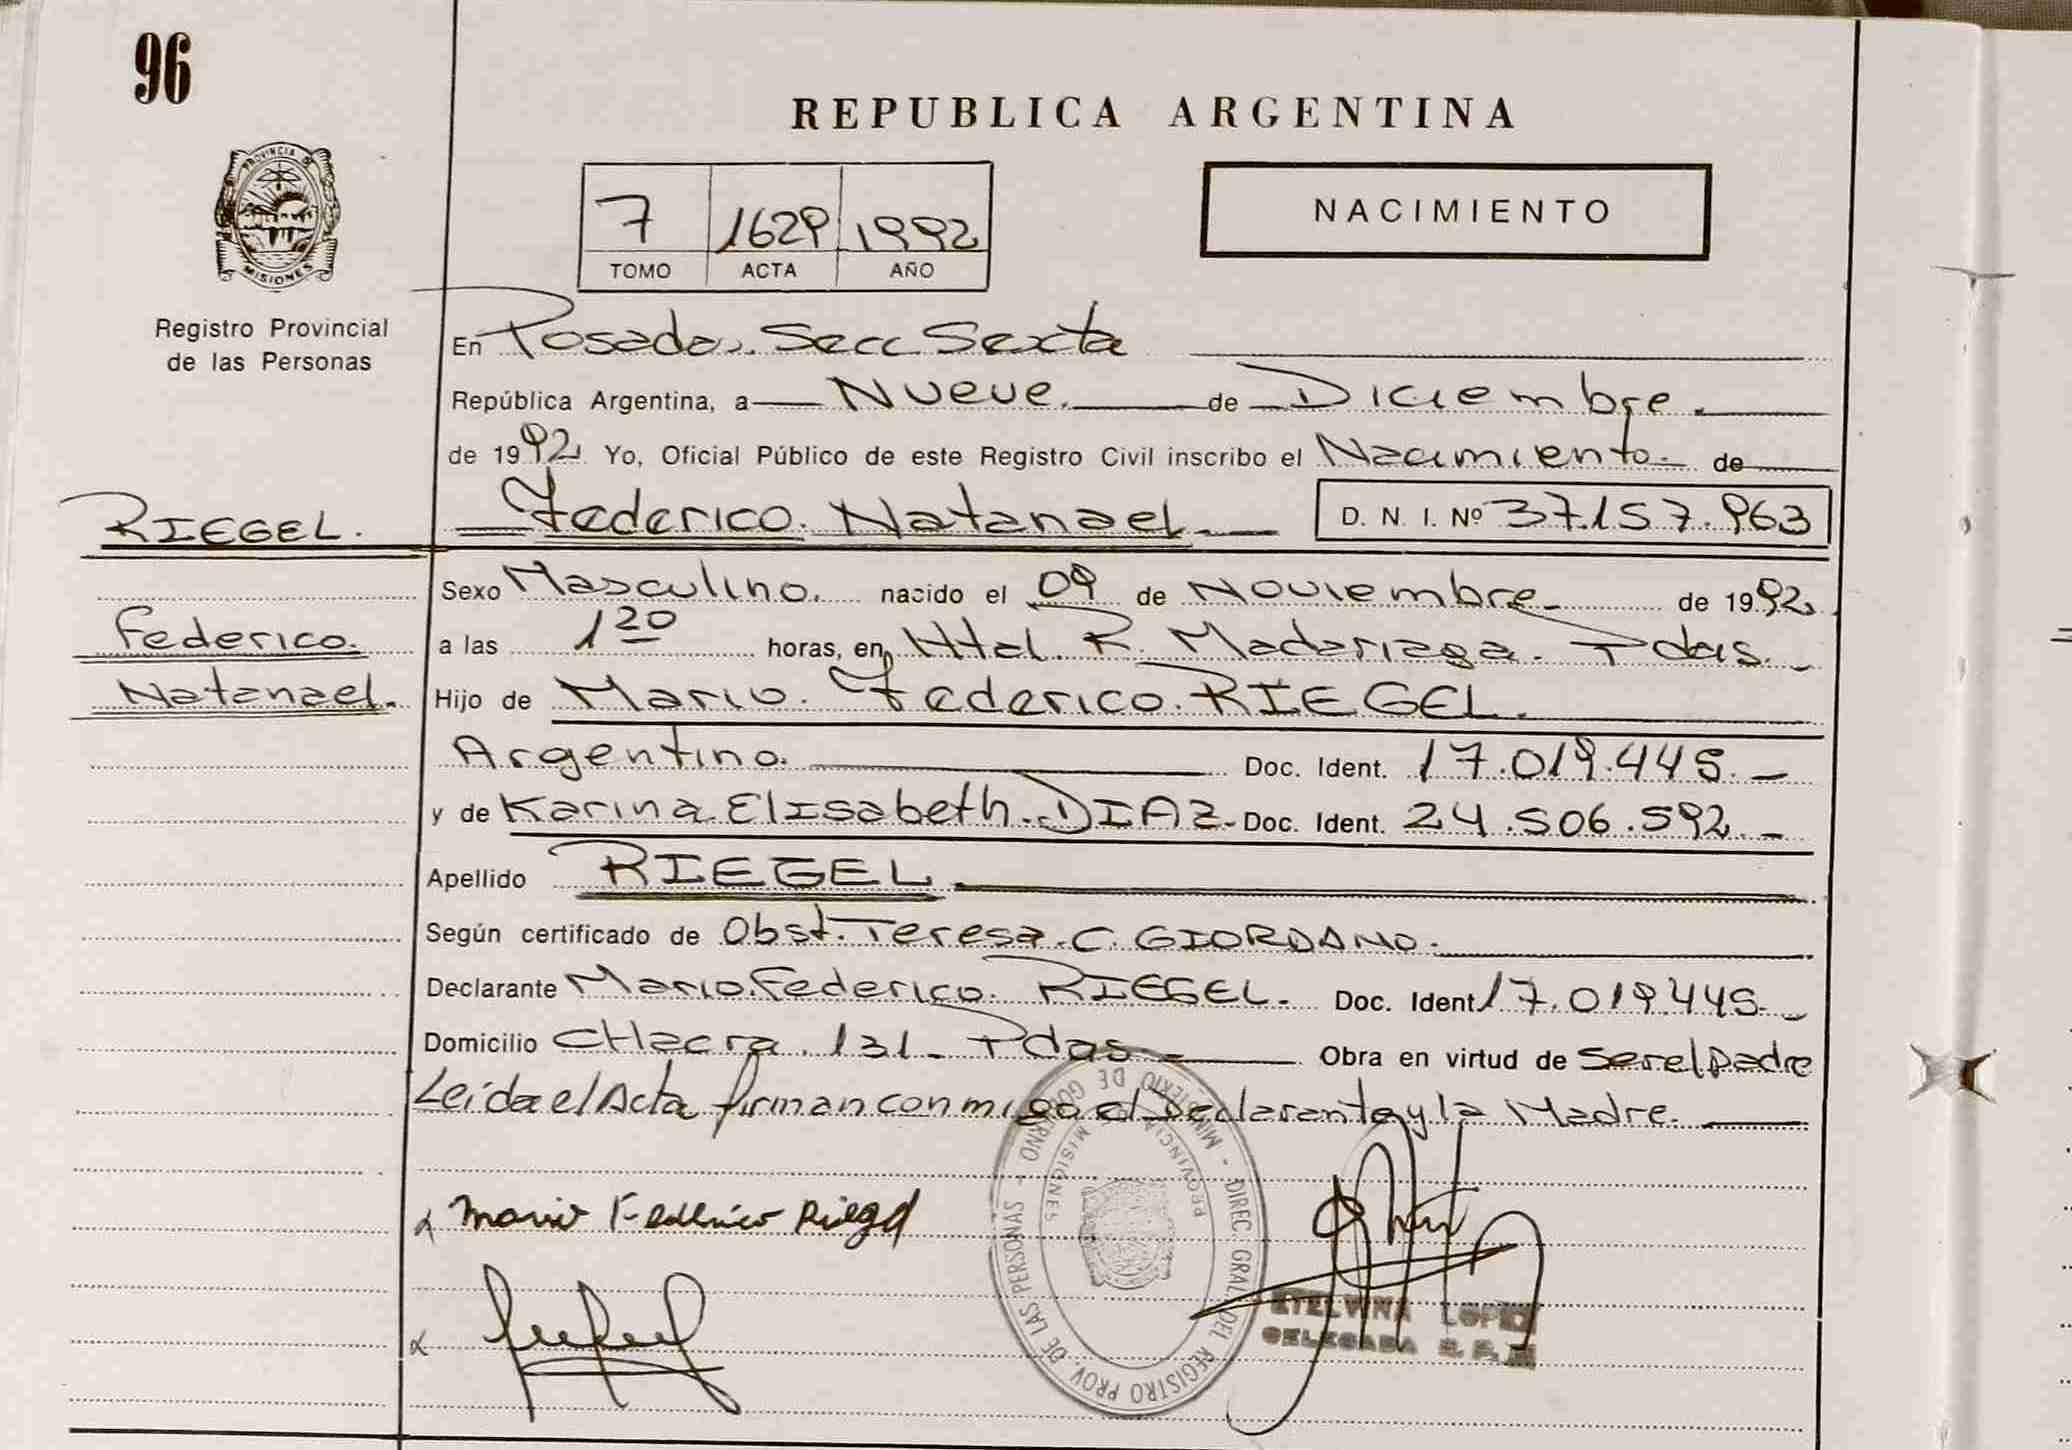 96
REPUBLICA ARGENTINA
PROVINCIA DE
MISIONES
7 1629 1992
TOMO ACTA AÑO
NACIMIENTO
Registro Provincial
de las Personas
En Posadas. Secc Sexta
República Argentina, a Nueve. de Diciembre.
de 1992 Yo, Oficial Público de este Registro Civil inscribo el Nacimiento. de
RIEGEL. Federico. Natanael D. N. I. Nº 37.157.963
Sexo Masculino. nacido el 09 de Noviembre de 1992.
Federico. a las 1 20 horas, en Htal. R. Madariaga. Pdas.
Natanael. Hijo de Mario. Federico. RIEGEL.
Argentino. Doc. Ident. 17.019.445.
y de Karina Elisabeth. DIAZ Doc. Ident. 24.506.592.
Apellido RIEGEL
Según certificado de Obst. Teresa. C. GIORDANO.
Declarante Mario. Federico. RIEGEL. Doc. Ident 17.019.445.
Domicilio CHacra. 131 Pdas Obra en virtud de ser el padre
Leida el Acta firman conmigo el Declarante y la Madre.
Mario Federico Riegel
MINISTERIO DE GOBIERNO - DIREC. GRAL. DEL REGISTRO PROV. DE LAS PERSONAS -
PROVINCIA MISIONES
ETELVINA LOPEZ
DELEGADA